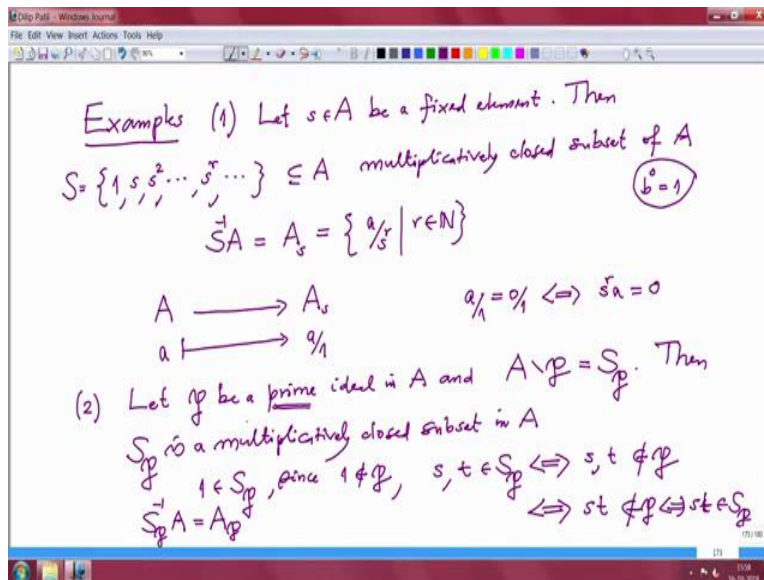 Dilip Patil - Windows Journal
File Edit View Insert Actions Tools Help
Examples (1) Let s∈A be a fixed element. Then
S = {1, s, s², ..., sʳ, ...} ⊆ A multiplicatively closed subset of A
b⁰=1
S⁻¹A = A_s = { a/sʳ | r∈ℕ}
A ⟶ A_s a/1 = 0/1 <=> sʳa = 0
a ⟼ a/1
(2) Let 𝔭 be a prime ideal in A and A∖𝔭 = S_𝔭. Then
S_𝔭 is a multiplicatively closed subset in A
1 ∈ S_𝔭, since 1 ∉ 𝔭, s, t ∈ S_𝔭 <=> s, t ∉ 𝔭
S_𝔭⁻¹A = A_𝔭 <=> st ∉ 𝔭 <=> st ∈ S_𝔭
173
15:58